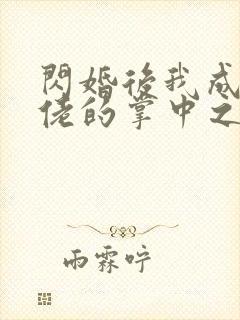 閃婚後我成
佬的掌中之
雨霖咛